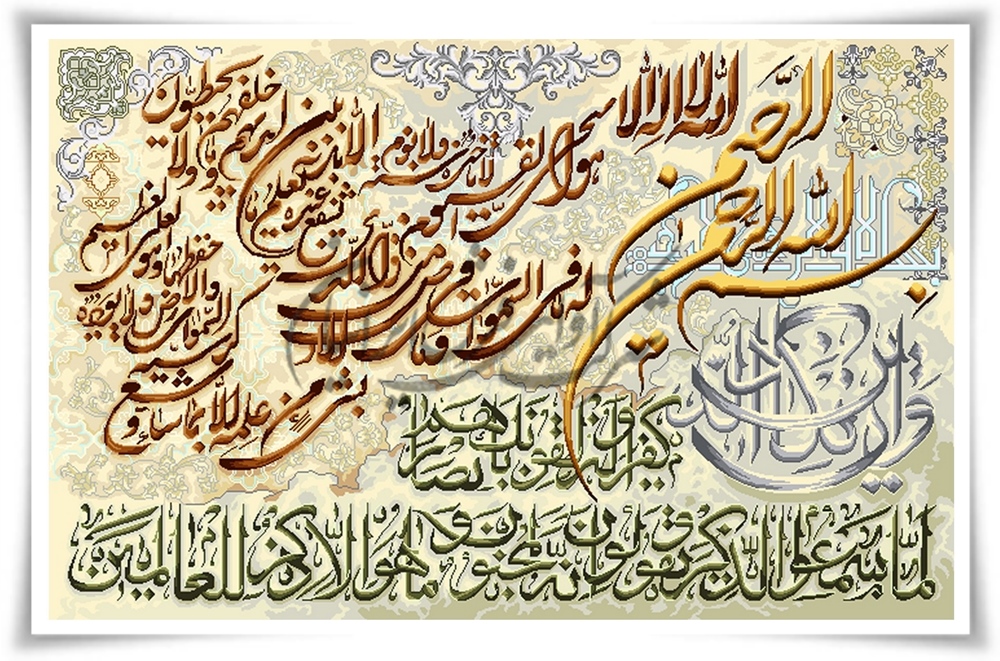 بسم الله الرحمن الرحیم
الله لا اله الا هو الحی القیوم لا تاخذه سنه ولا نوم
له ما فی السموات و ما فی الارض من ذا الذی یشفع عنده الا باذنه یعلم ما بین ایدیهم و ما خلفهم ولا یحیطون
بشیء من علمه الا بما شاء وسع
کرسیه السموات والارض ولا یوده حفظهما و هو العلی العظیم
وان یکاد الذین
کفروا لیزلقونک بابصارهم
لما سمعوا الذکر و یقولون انه لمجنون و ما هو الا ذکر للعالمین